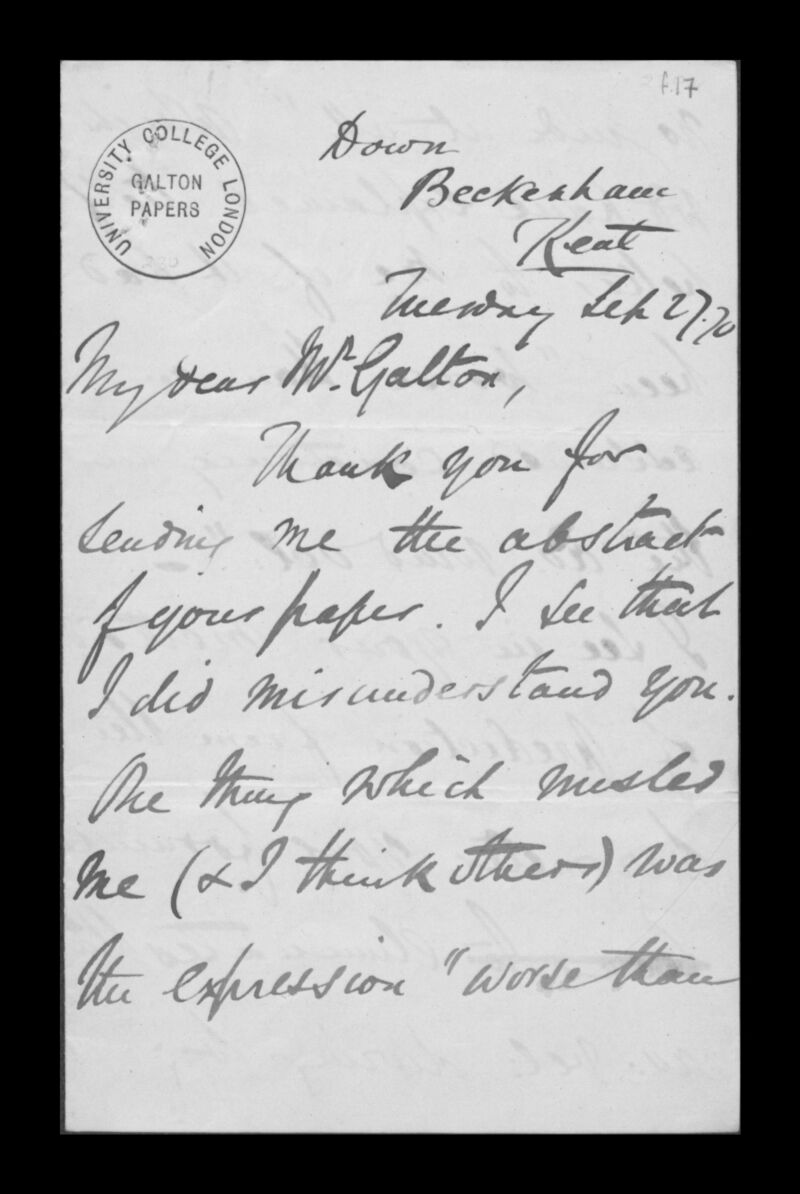 f.17
UNIVERSITY COLLEGE LONDON
GALTON
PAPERS
Down
Beckenham
Kent
Tuesday Sep 27. 70
My dear Mr. Galton,
Thank you for
sending me the abstract
of your paper. I see that
I did misunderstand you.
One thing which misled
me (& I think others) was
the expression "worse than